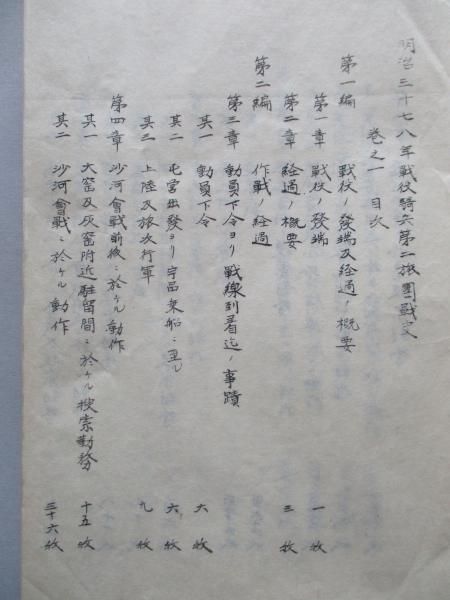 明治三十七八年戦役騎兵第二旅團戦史
巻之一 目次
第一編 戦役ノ發端及経過ノ概要
第一章 戦役ノ發端 一枚
第二章 経過ノ概要 三枚
第二編 作戦ノ経過
第三章 動員下令ヨリ戦線到着迄ノ事蹟
其一 動員下令 六枚
其二 屯営出發ヨリ宇品乗船ニ至ル 六枚
其三 上陸及旅次行軍 九枚
第四章 沙河會戦前後ニ於ケル動作
其一 大窑及灰窑附近駐留間ニ於ケル捜索勤務 十五枚
其二 沙河會戦ニ於ケル動作 三十六枚